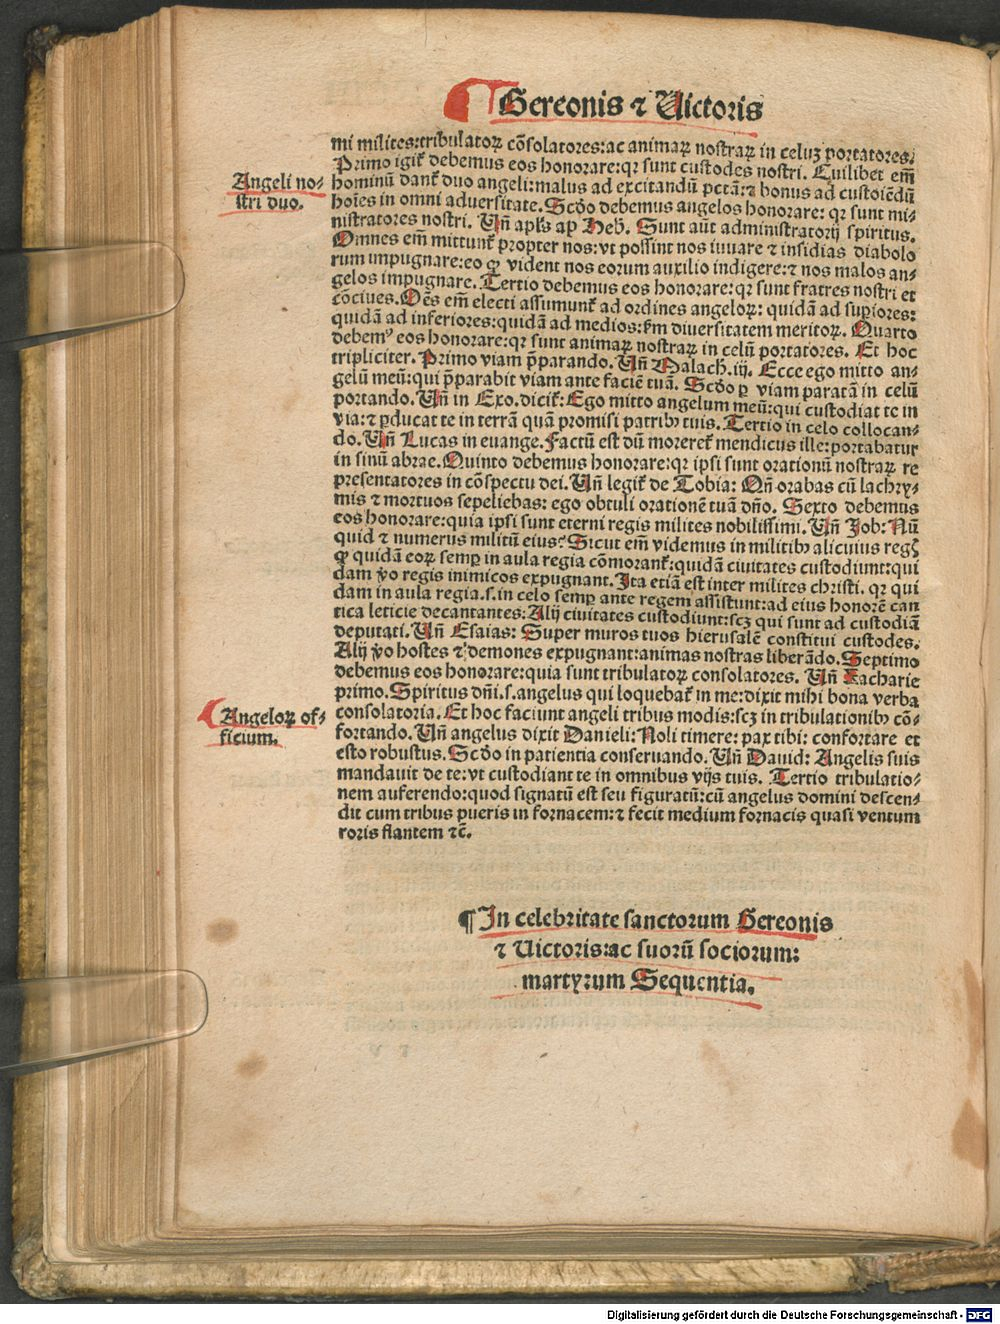 ¶ Gereonis ⁊ Uictoris
mi milites:tribulatoꝝ cõsolatores:ac animaꝝ nostraꝝ in celuꝫ portatores.
Primo igit̃ debemus eos honorare:qꝛ sunt custodes nostri. Cuilibet em̃
Angeli no⸗
stri duo.
hominũ dant̃ duo angeli:malus ad excitandũ pctã:⁊ bonus ad custoiẽdũ
hoĩes in omni aduersitate. Scḋo debemus angelos honorare: qꝛ sunt mi⸗
nistratores nostri. Un̄ apl̃s ap̃ Heb̃. Sunt aũt administratorij spiritus.
Omnes em̃ mittunt̃ propter nos:vt possint nos iuuare ⁊ insidias diabolo
rum impugnare:eo ꝙ vident nos eorum auxilio indigere:⁊ nos malos an⸗
gelos impugnare. Tertio debemus eos honorare:qꝛ sunt fratres nostri et
cõciues. Oẽs em̃ electi assumunt̃ ad ordines angeloꝝ: quidã ad supiores:
quidã ad inferiores:quidã ad medios:fm̃ diuersitatem meritoꝝ. Quarto
debemꝰ eos honorare:qꝛ sunt animaꝝ nostraꝝ in celũ portatores. Et hoc
tripliciter. Primo viam p̃parando. Un̄ Malach̃. iij. Ecce ego mitto an⸗
gelũ meũ:qui p̃parabit viam ante faciẽ tuã. Scḋo ꝑ viam paratã in celũ
portando. Un̄ in Exo. dicit̃: Ego mitto angelum meũ:qui custodiat te in
via:⁊ ꝑducat te in terrã quã promisi patribꝫ tuis. Tertio in celo collocan⸗
do. Un̄ Lucas in euange. Factũ est dũ moreret̃ mendicus ille:portabatur
in sinũ abrae. Quinto debemus honorare:qꝛ ipsi sunt orationũ nostraꝝ re
presentatores in cõspectu dei. Un̄ legit̃ de Tobia: Qñ orabas cũ lachry⸗
mis ⁊ mortuos sepeliebas: ego obtuli orationẽ tuã dño. Sexto debemus
eos honorare:quia ipsi sunt eterni regis milites nobilissimi. Un̄ Job: Nũ
quid ⁊ numerus militũ eius? Sicut em̃ videmus in militibꝫ alicuius reg̃
ꝙ quidã eoꝝ semꝑ in aula regia cõmorant̃:quidã ciuitates custodiunt:qui
dam ṽo regis inimicos expugnant. Ita etiã est inter milites christi. qꝛ qui
dam in aula regia.s.in celo semꝑ ante regem assistunt:ad eius honorẽ can
tica leticie decantantes: Alij ciuitates custodiunt:scꝫ qui sunt ad custodiã
deputati. Un̄ Esaias: Super muros tuos hierusalẽ constitui custodes.
Alij ṽo hostes ⁊ demones expugnant:animas nostras liberãdo. Septimo
debemus eos honorare:quia sunt tribulatoꝝ consolatores. Un̄ Zacharie
primo. Spiritus dñi.s.angelus qui loquebat̃ in me:dixit mihi bona verba
Angeloꝝ of⸗
ficium.
consolatoria. Et hoc faciunt angeli tribus modis:scꝫ in tribulationibꝫ cõ⸗
fortando. Un̄ angelus dixit Danieli: Noli timere: pax tibi: confortare et
esto robustus. Scḋo in patientia conseruando. Un̄ Dauid: Angelis suis
mandauit de te:vt custodiant te in omnibus vijs tuis. Tertio tribulatio⸗
nem auferendo:quod signatũ est seu figuratũ:cũ angelus domini descen⸗
dit cum tribus pueris in fornacem:⁊ fecit medium fornacis quasi ventum
roris flantem ⁊c̃.
¶ In celebritate sanctorum Gereonis
⁊ Uictoris:ac suorũ sociorum:
martyrum Sequentia.
Digitalisierung gefördert durch die Deutsche Forschungsgemeinschaft - DFG